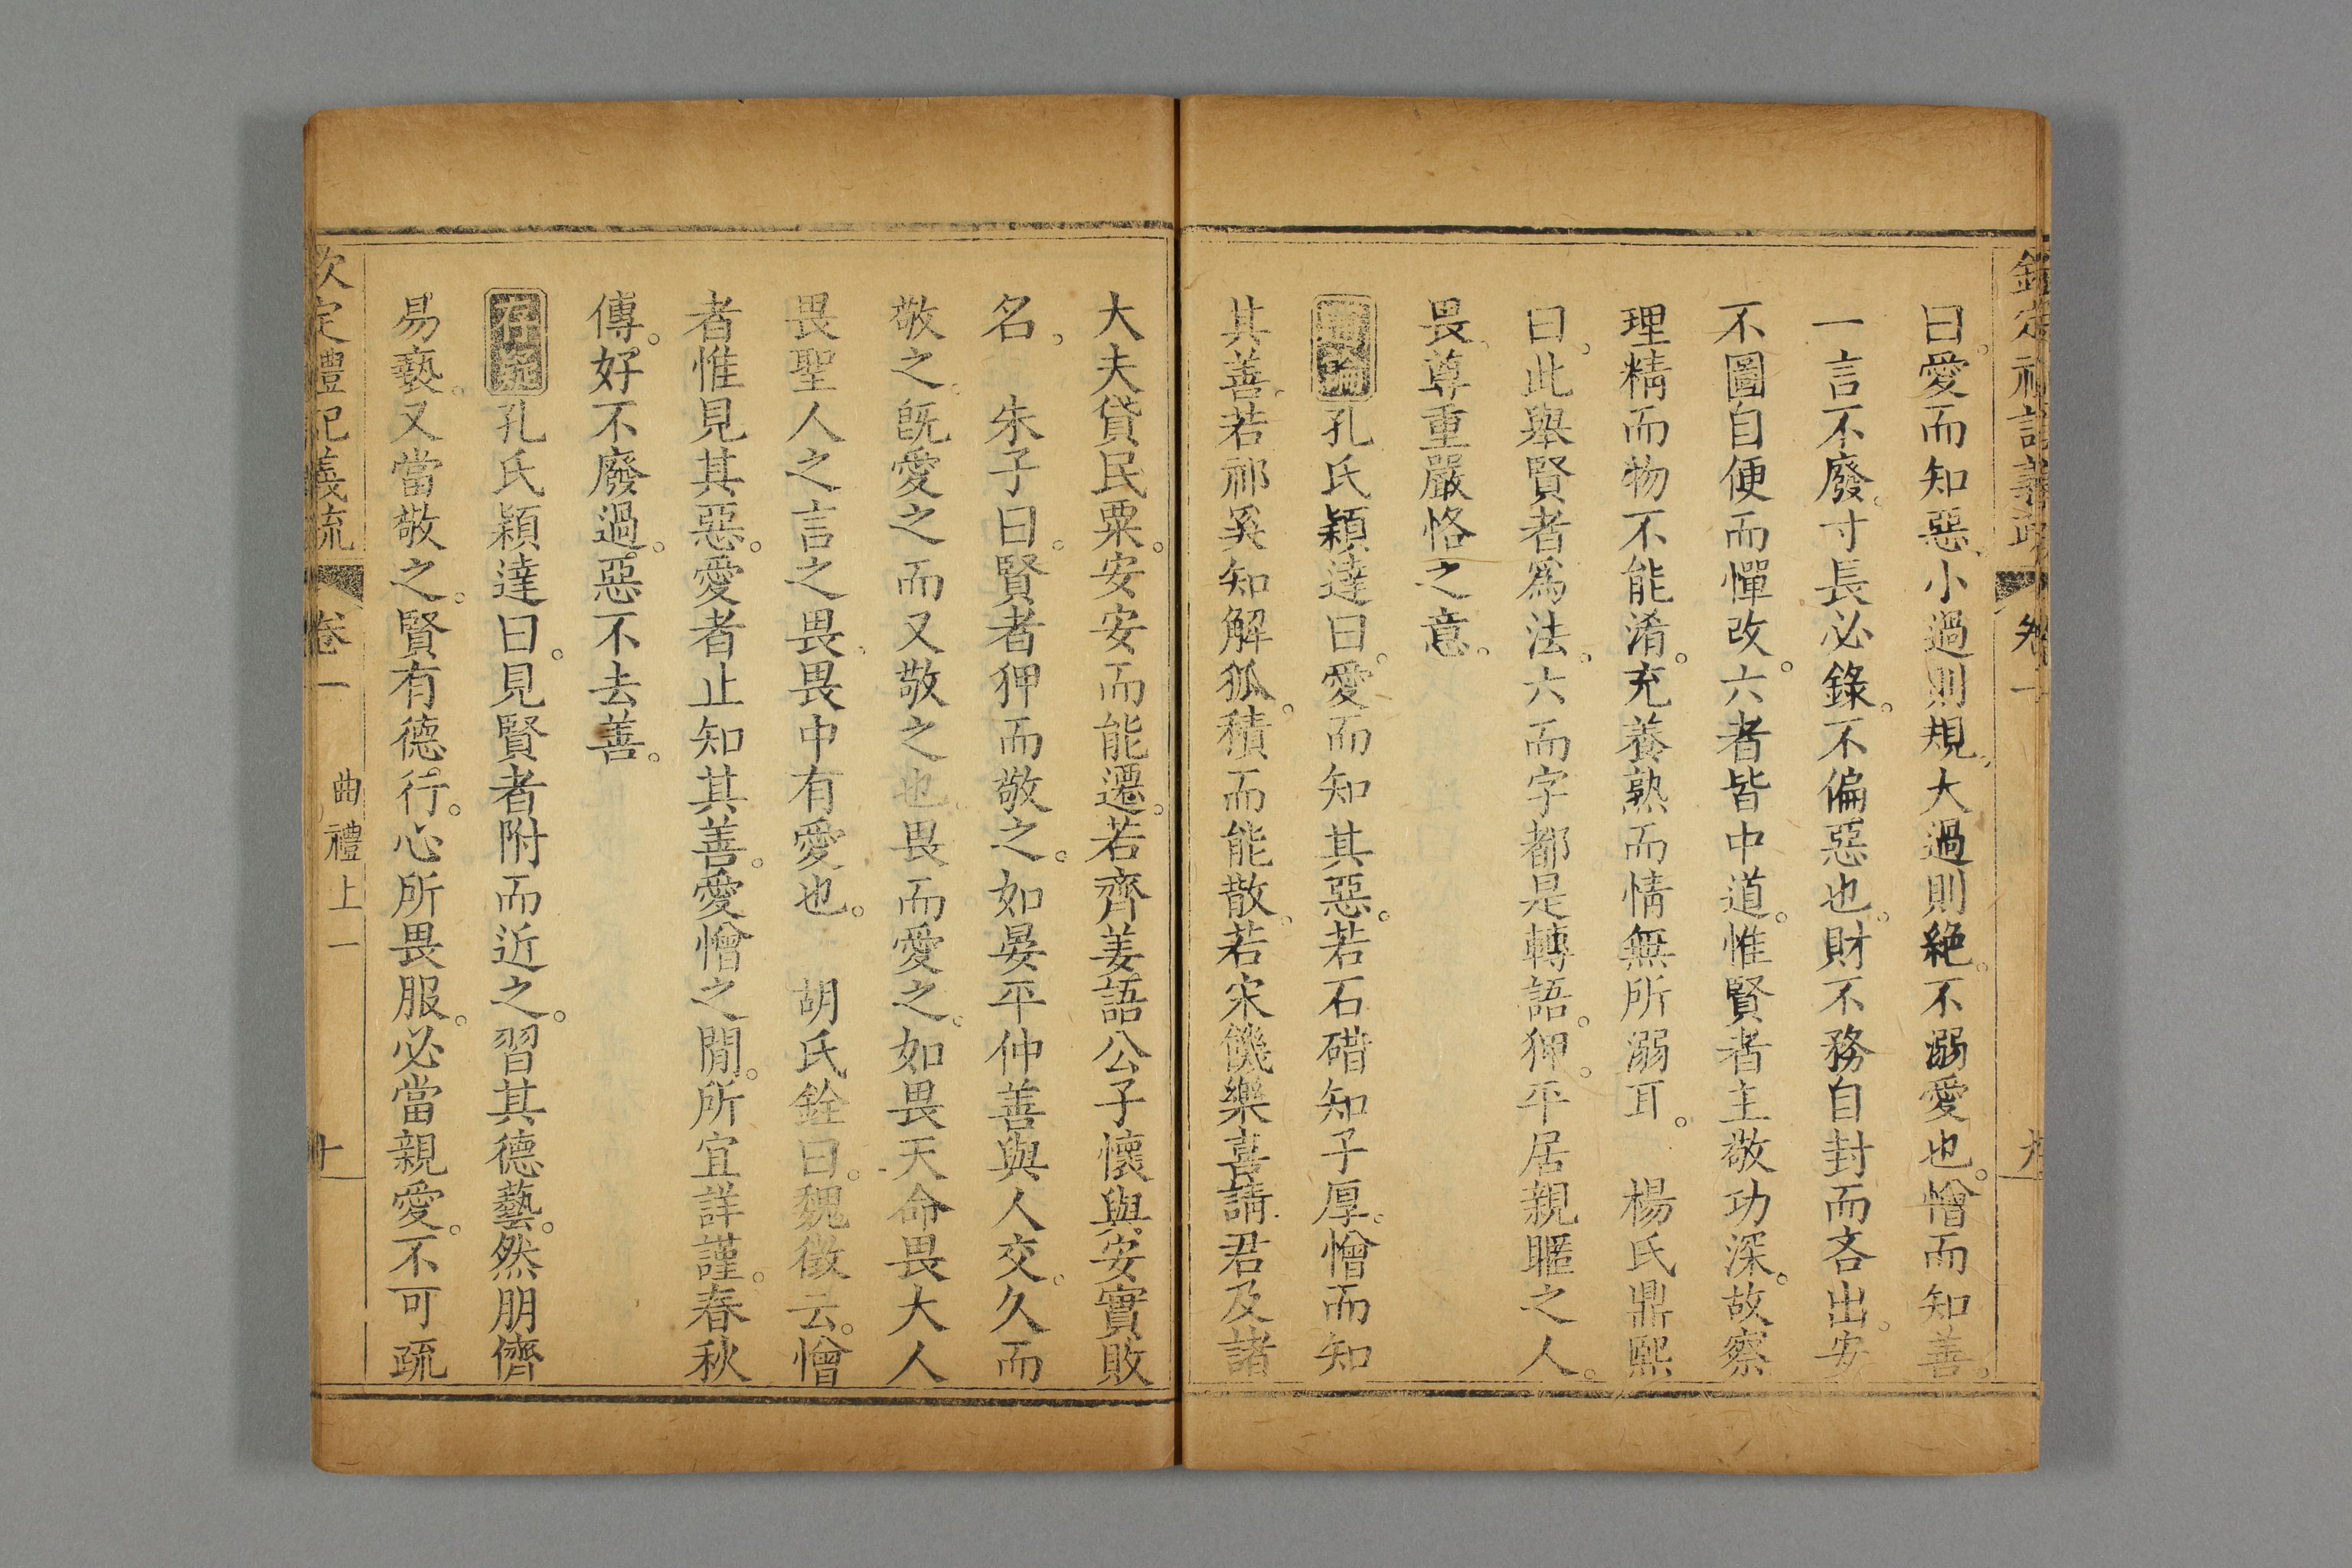 曰愛而知惡小過則規大過則絶不溺愛也憎而知善
一言不廢寸長必錄不偏惡也財不務自封而吝出安
不圖自便而憚改六者皆中道惟賢者主敬功深故察
理精而物不能淆充養熟而情無所溺耳　楊氏鼎熙
曰此舉賢者爲法六而字都是轉語狎平居親暱之人
畏尊重嚴恪之意
孔氏穎達曰愛而知其惡若石碏知子厚憎而知
其善若祁奚知解狐積而能散若宋饑樂喜請君及諸
大夫貸民粟安安而能遷若齊姜語公子懷與安實敗
名　朱子曰賢者狎而敬之如晏平仲善與人交久而
敬之旣愛之而又敬之也畏而愛之如畏天命畏大人
畏聖人之言之畏畏中有愛也　胡氏銓曰魏徵云憎
者惟見其惡愛者止知其善愛憎之閒所宜詳謹春秋
傳好不廢過惡不去善
存疑孔氏穎達曰見賢者附而近之習其德藝然朋儕
易褻又當敬之賢有德行心所畏服必當親愛不可疏
欽定禮記義疏　卷一　曲禮上一　十